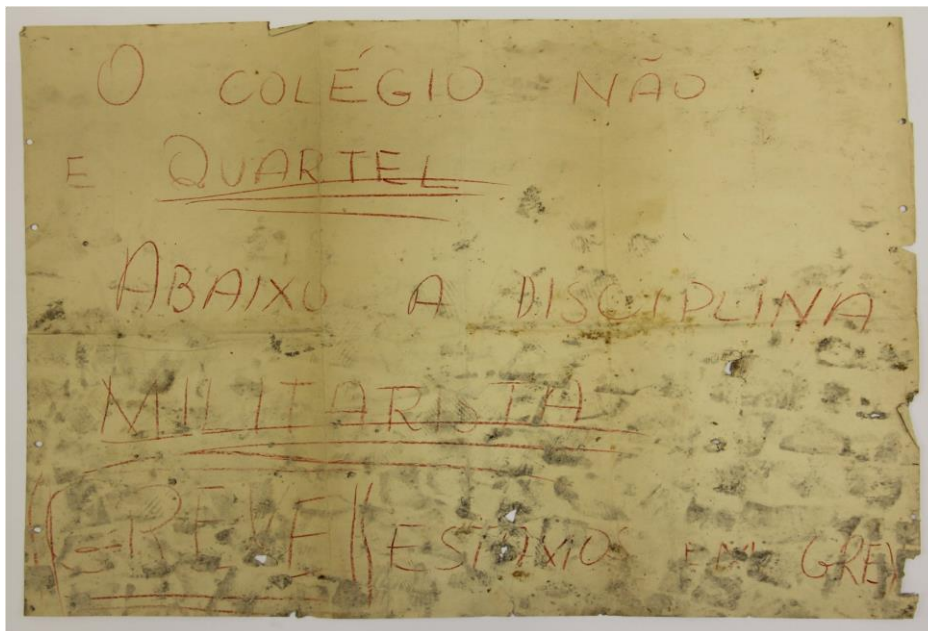 O COLÉGIO NÃO
E QUARTEL
ABAIXO A DISCIPLINA
MILITARISTA
GREVE ESTAMOS EM GREV